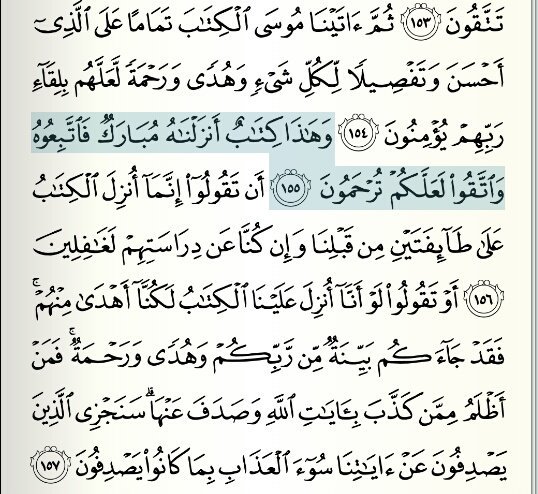 تَتَّقُونَ ١٥٣ ثُمَّ ءَاتَيْنَا مُوسَى ٱلْكِتَٰبَ تَمَامًا عَلَى ٱلَّذِىٓ
أَحْسَنَ وَتَفْصِيلًا لِّكُلِّ شَىْءٍ وَهُدًى وَرَحْمَةً لَّعَلَّهُم بِلِقَآءِ
رَبِّهِمْ يُؤْمِنُونَ ١٥٤ وَهَٰذَا كِتَٰبٌ أَنزَلْنَٰهُ مُبَارَكٌ فَٱتَّبِعُوهُ
وَٱتَّقُوا۟ لَعَلَّكُمْ تُرْحَمُونَ ١٥٥ أَن تَقُولُوٓا۟ إِنَّمَآ أُنزِلَ ٱلْكِتَٰبُ
عَلَىٰ طَآئِفَتَيْنِ مِن قَبْلِنَا وَإِن كُنَّا عَن دِرَاسَتِهِمْ لَغَٰفِلِينَ
١٥٦ أَوْ تَقُولُوا۟ لَوْ أَنَّآ أُنزِلَ عَلَيْنَا ٱلْكِتَٰبُ لَكُنَّآ أَهْدَىٰ مِنْهُمْ ۚ
فَقَدْ جَآءَكُم بَيِّنَةٌ مِّن رَّبِّكُمْ وَهُدًى وَرَحْمَةٌ ۚ فَمَنْ
أَظْلَمُ مِمَّن كَذَّبَ بِـَٔايَٰتِ ٱللَّهِ وَصَدَفَ عَنْهَا ۗ سَنَجْزِى ٱلَّذِينَ
يَصْدِفُونَ عَنْ ءَايَٰتِنَا سُوٓءَ ٱلْعَذَابِ بِمَا كَانُوا۟ يَصْدِفُونَ ١٥٧